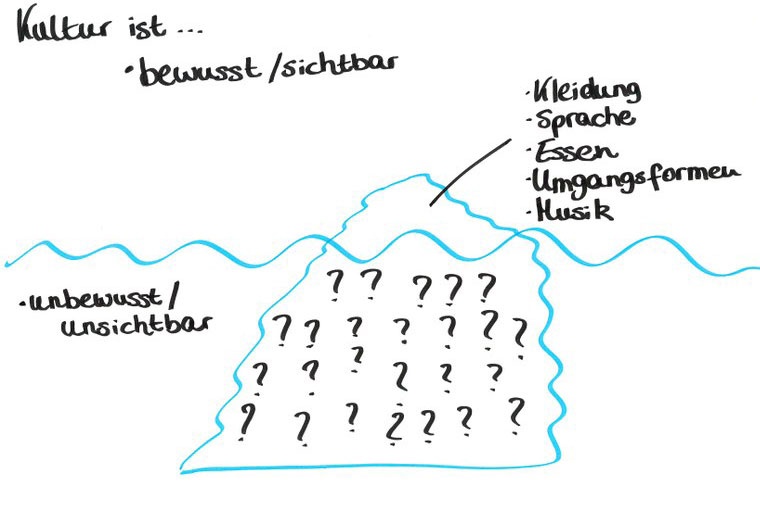 Kultur ist ...
· bewusst/sichtbar
· Kleidung
· Sprache
· Essen
· Umgangsformen
· Musik
· unbewusst/
unsichtbar
? ? ? ? ?
? ? ? ? ? ? ?
? ? ? ? ? ?
? ? ? ? ? ? ?